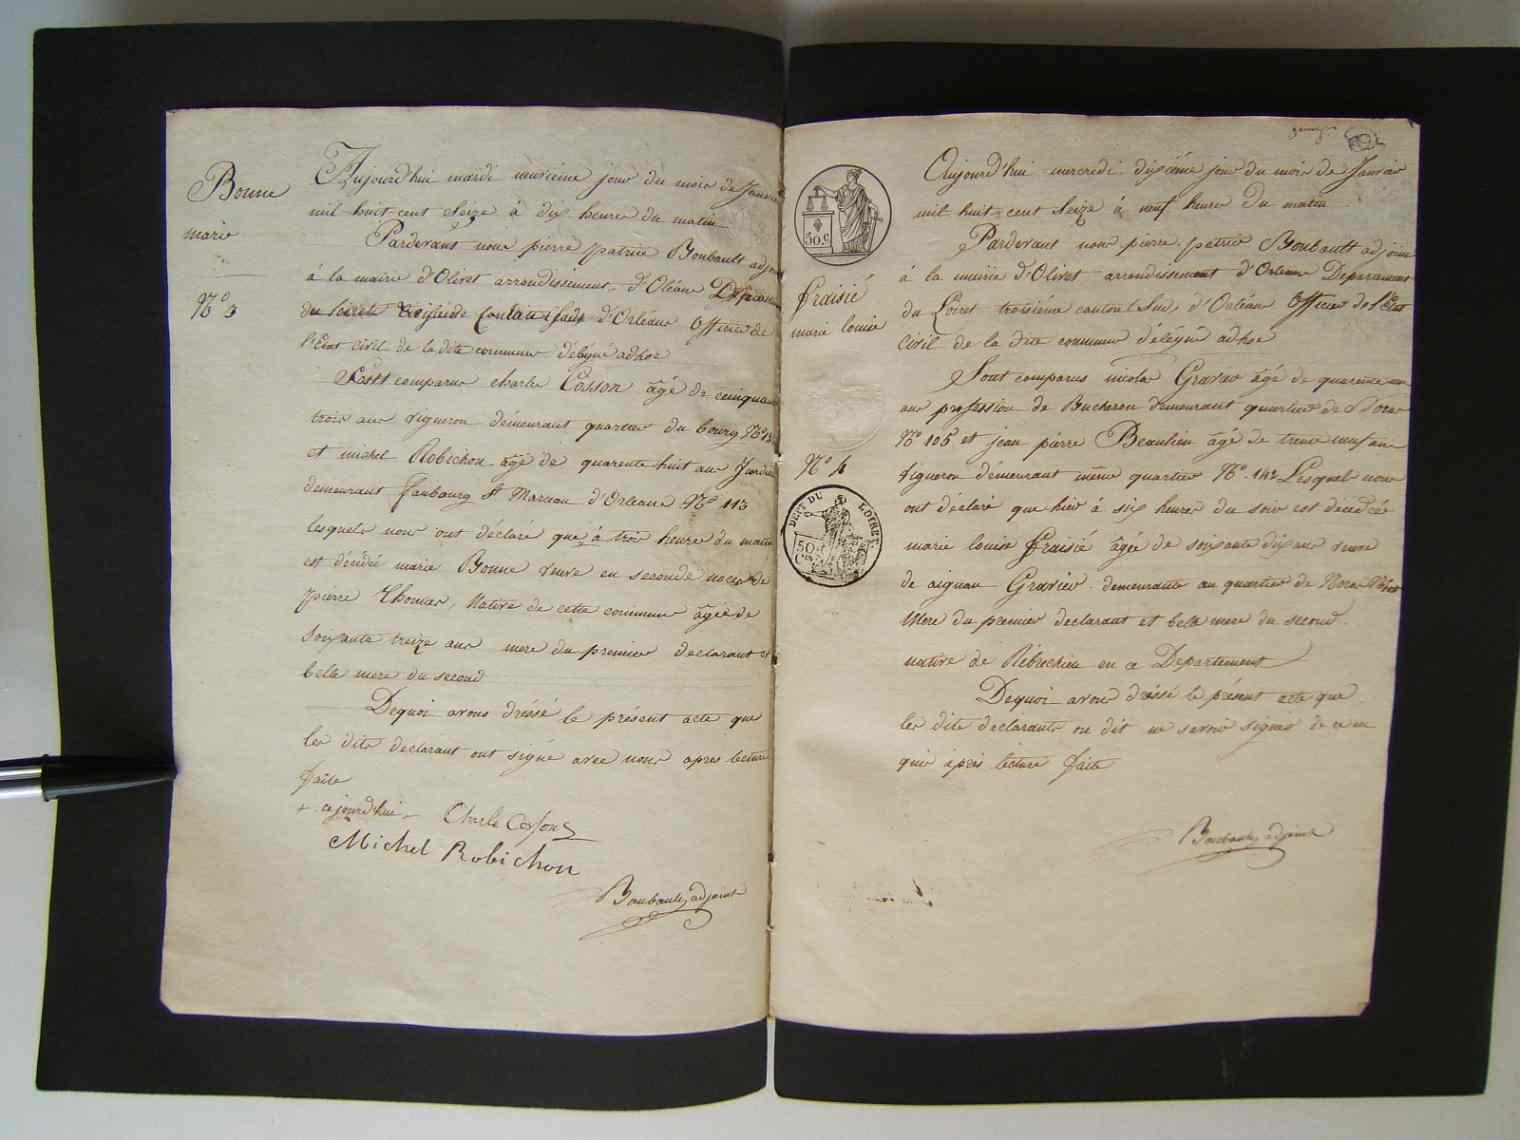 Bonne
marie
N.º 3
Aujourd'hui mardi neuvieme jour du mois de Janvier
mil huit cent Seize à dix heure du matin
Pardevant nous pierre patrice Boubault adjoin
à la mairie d'Olivet arrondissement d'Oléans
du Loiret d'Orléans Officier de
l'Etat civil de la dite commune délégué adhoc
Sont comparus charles Cosson âgé de cinquan
trois ans vigneron démeurant quartier du bourg N.º
et michel Robichon âgé de quarente huit ans
demeurant faubourg St Marceau d'Orleans N.º 113
lesquels nous ont déclaré que à trois heure du matin
est décédée marie Bonne veuve en seconde noces de
pierre Thomas, Native de cette commune âgée de
soixante treize ans mere du premier declarant et
belle mere du second
Dequoi avons dréssé le présent acte que
les dits declarant ont signé avec nous apres lecture
faite
+ cejourd'hui
Charle Cosson
Michel Robichon
Boubault, adjoint
fraisié
marie louise
N.º 4
50 c
DEPT DU LOIRET.
50
Aujourd'hui mercredi dixiéme jour du mois de Janvier
mil huit cent Seize à neuf heure du matin
Pardevant nous pierre patrice Boubault adjoin
à la mairie d'Olivet arrondissement d'Orleans Departement
du Loiret troisiéme canton Sud d'Orléans Officier de l'Etat
Civil de la dite commune délégué adhoc
Sont comparus nicolas Gravier âgé de quarente
ans profession de Bucheron demeurant quartier de
N.º 105 et jean pierre Beaulieu âgé de trente neuf ans
vigneron démeurant même quartier N.º 142 Lesquels nous
ont déclaré que hier à six heures du soir est décédée
marie louise fraisié âgée de soixante dix ans veuve
de aignan Gravier demeurante au quartier de
Mere du premier declarant et belle mere du second.
native de Rébrechien en ce Departement
Dequoi avons dréssé le présent acte que
les dits declarants on dit ne savoir signer de ce en
quis après lecture faite
Boubault, adjoint